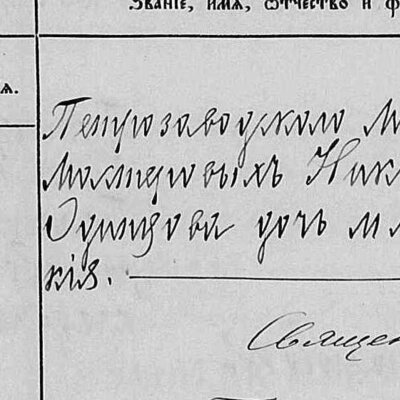 Званіе, имя, отчество и ф
я.
Петрозаводского М
мастеровыхъ Ник
Одинцова дочь мл
кія.
Священ